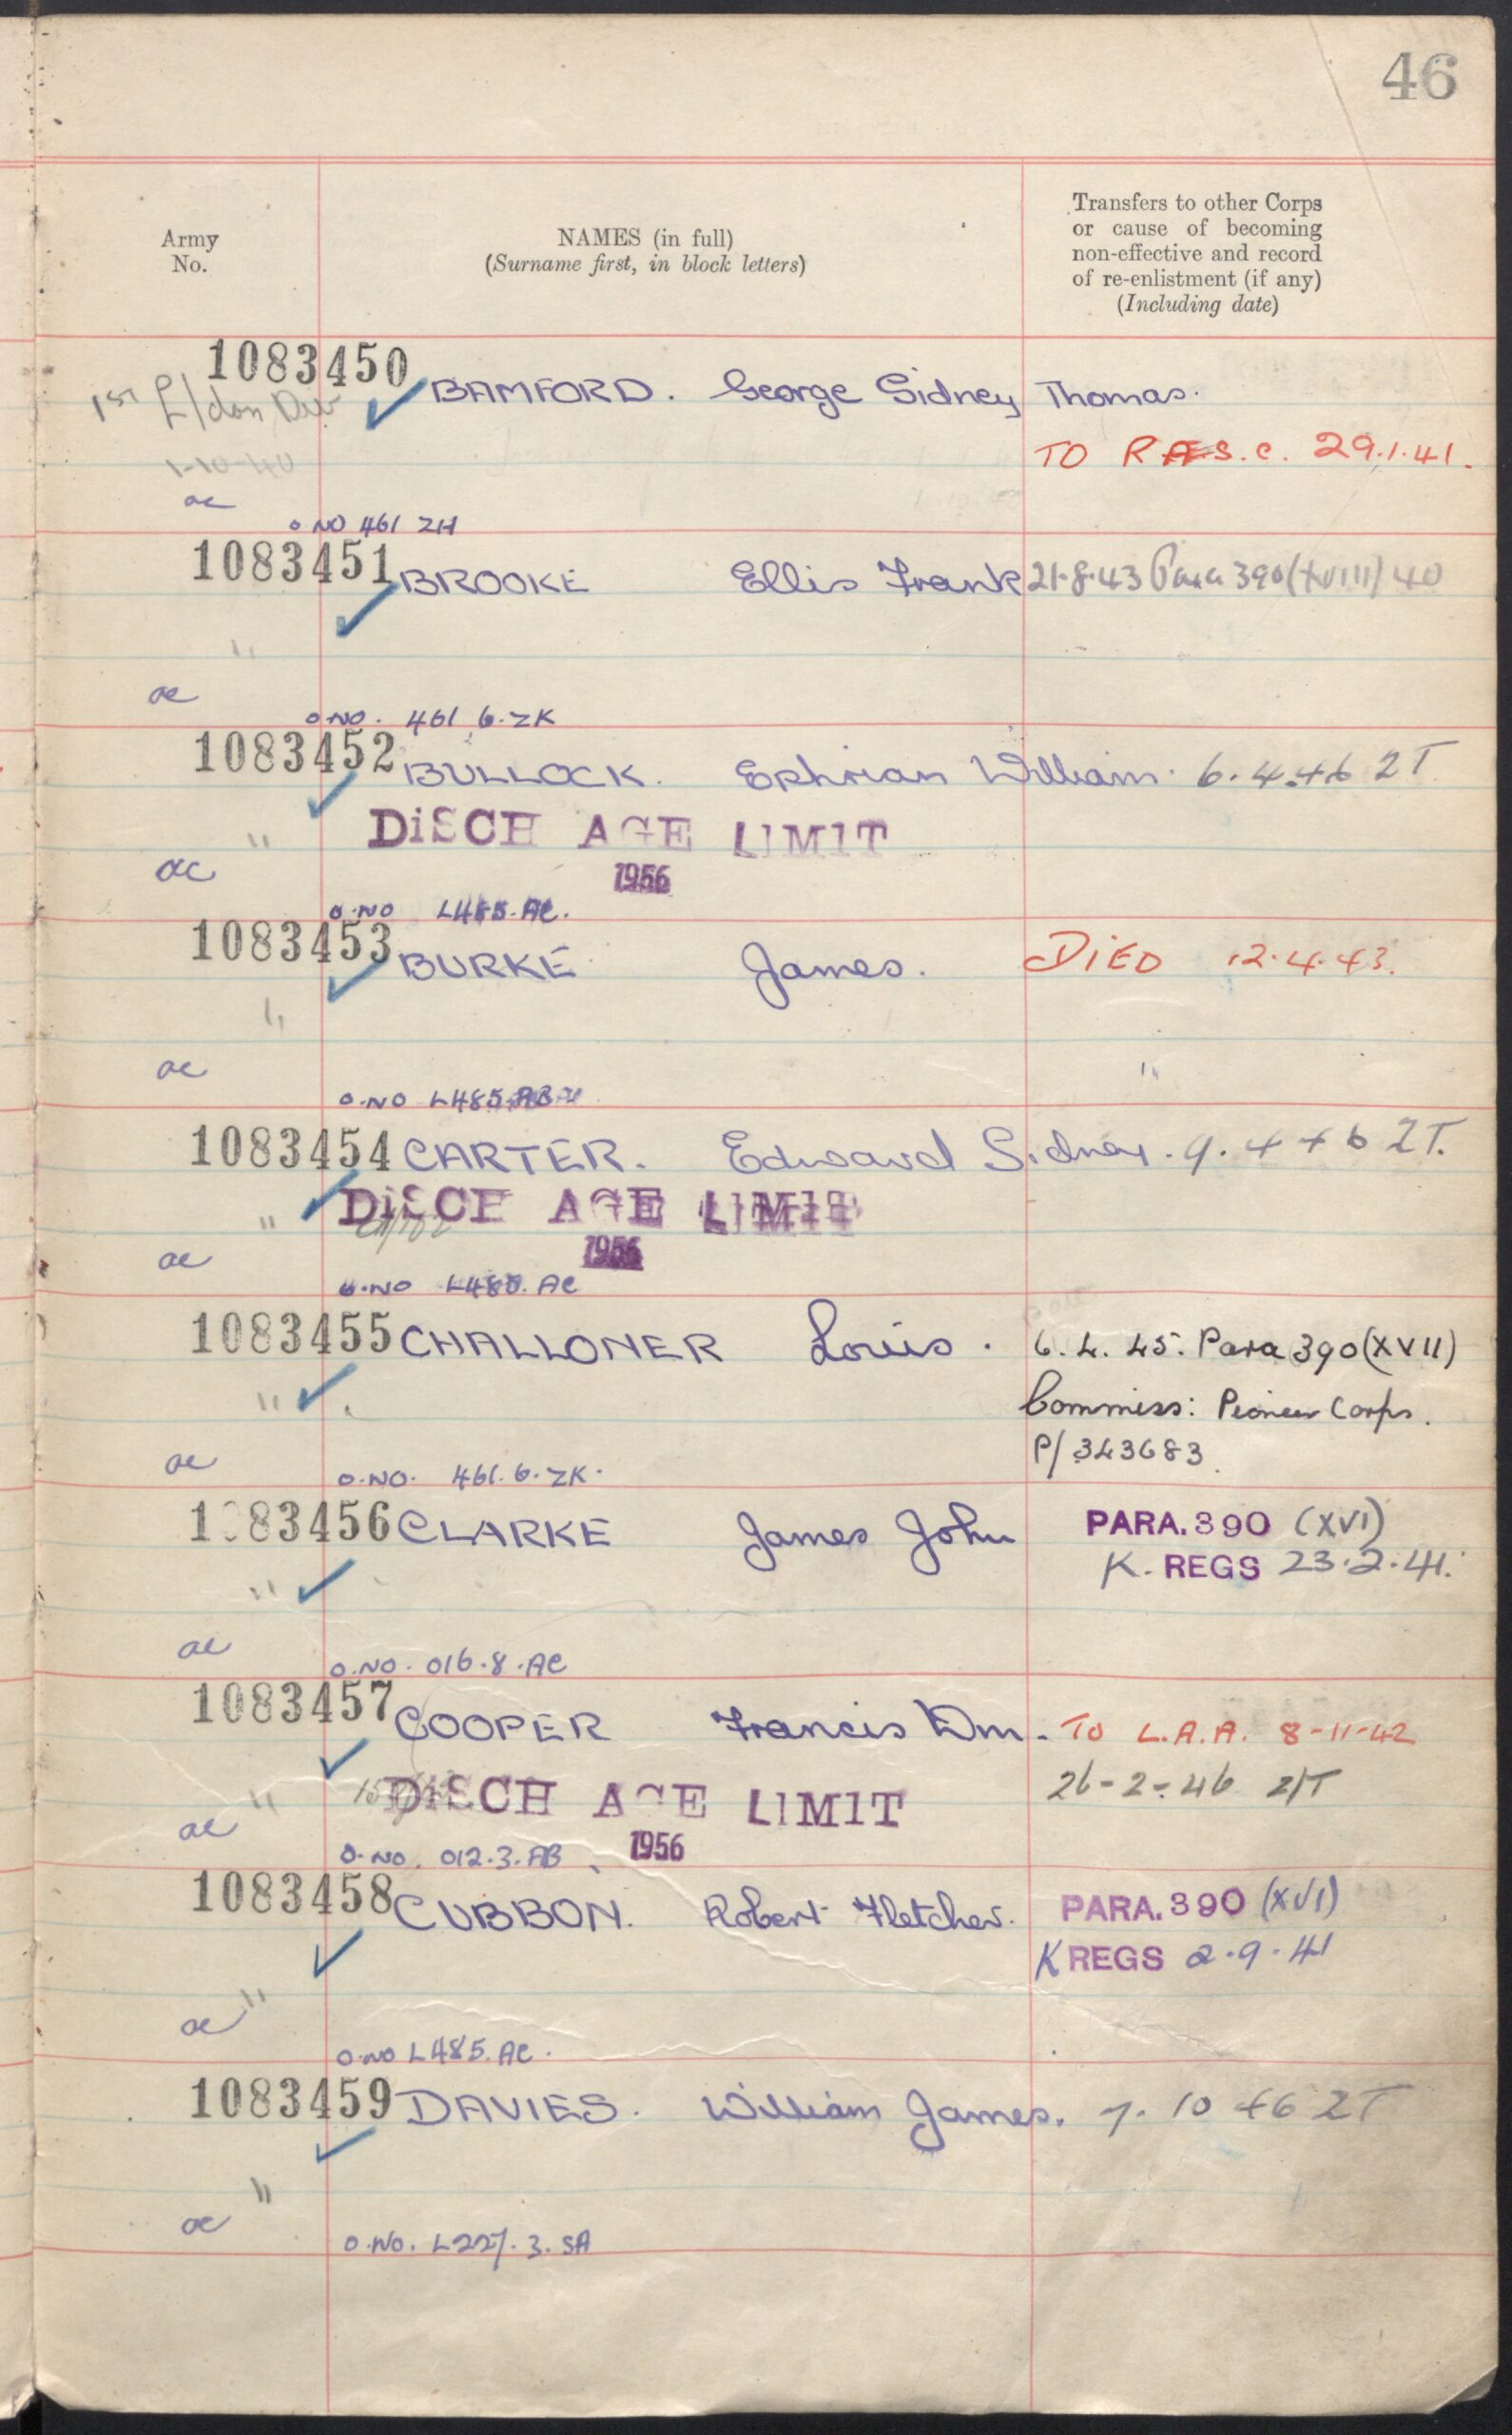 46
Army
No.
NAMES (in full)
(Surname first, in block letters)
Transfers to other Corps
or cause of becoming
non-effective and record
of re-enlistment (if any)
(Including date)
1083450 BAMFORD. George Sidney Thomas.
1st L/don Div
1-10-40
TO R.A.S.C. 29.1.41.
ac
O NO 461 ZH
1083451 BROOKE Ellis Frank 21.8.43 Para 390(XVIII) 40
"
ac
O NO. 461 6.ZK
1083452 BULLOCK. Ephrian William. 6.4.46 ZT
" DISCH AGE LIMIT
ac
1956
O.NO L485.AC.
1083453 BURKE James. DIED 12.4.43.
"
ac "
O.NO L485
1083454 CARTER. Edward Sidney. 9.4 46 ZT.
" DISCH AGE LIMIT
ac
1956
O.NO L485.AC
1083455 CHALLONER Louis. 6.4.45. Para 390(XVII)
" Commiss: Pioneer Corps.
P/343683
ac
O.NO. 461.6.ZK.
1083456 CLARKE James John PARA.390 (XVI)
" K. REGS 23.2.41.
ac
O.NO. 016.8.AC
1083457 COOPER Francis Wm. TO L.A.A. 8-11-42
" DISCH AGE LIMIT 26-2-46 Z/T
ac
1956
O.NO. 012.3.AB
1083458 CUBBON. Robert Fletcher. PARA.390 (XVI)
K REGS 2.9.41
"
ac
O.NO L485.AC.
1083459 DAVIES. William James. 7.10 46 ZT
"
ac
O.NO. L227.3.SA